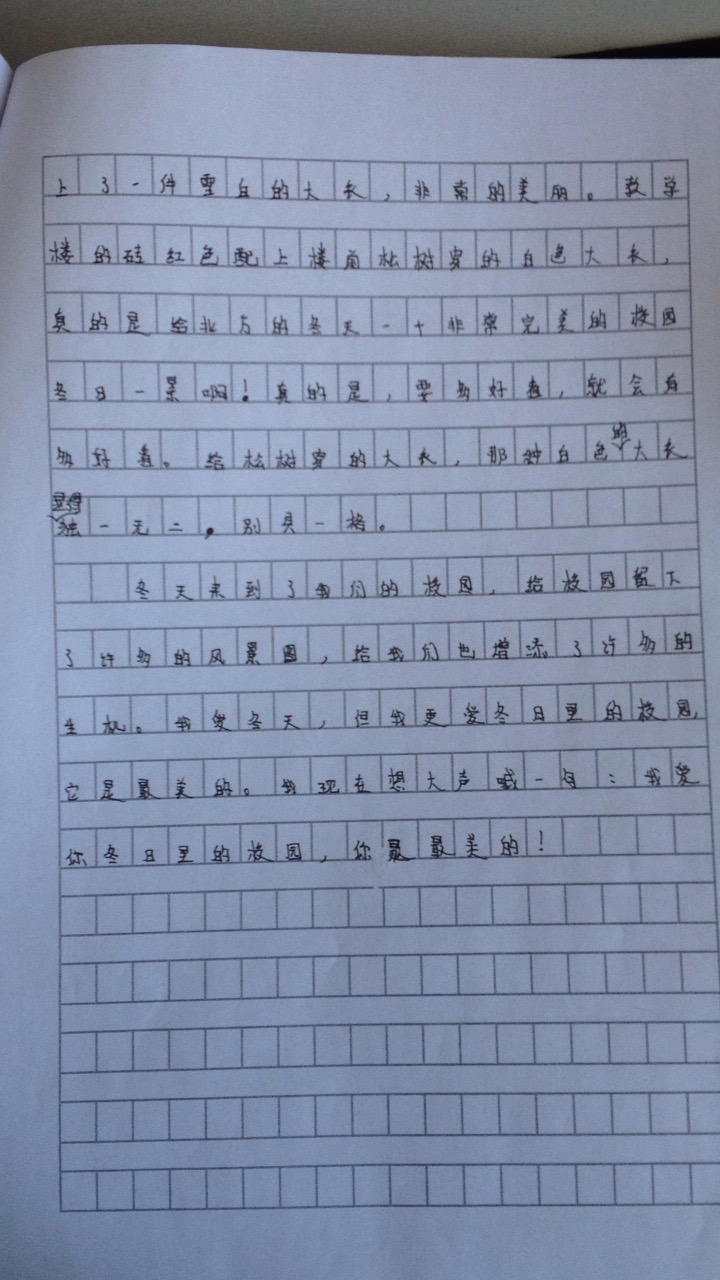 上了一件雪白的大衣，非常的美丽。教学
楼的砖红色配上楼前松树穿的白色大衣，
真的是给北方的冬天一个非常完美的校园
冬日一景啊！真的是，要多好看，就会有
多好看。给松树穿的大衣，那种白色的大衣
显得独一无二，别具一格。
冬天来到了我们的校园，给校园留下
了许多的风景图，给我们也增添了许多的
生机。我爱冬天，但我更爱冬日里的校园，
它是最美的。我现在想大声喊一句：我爱
你冬日里的校园，你是最美的！